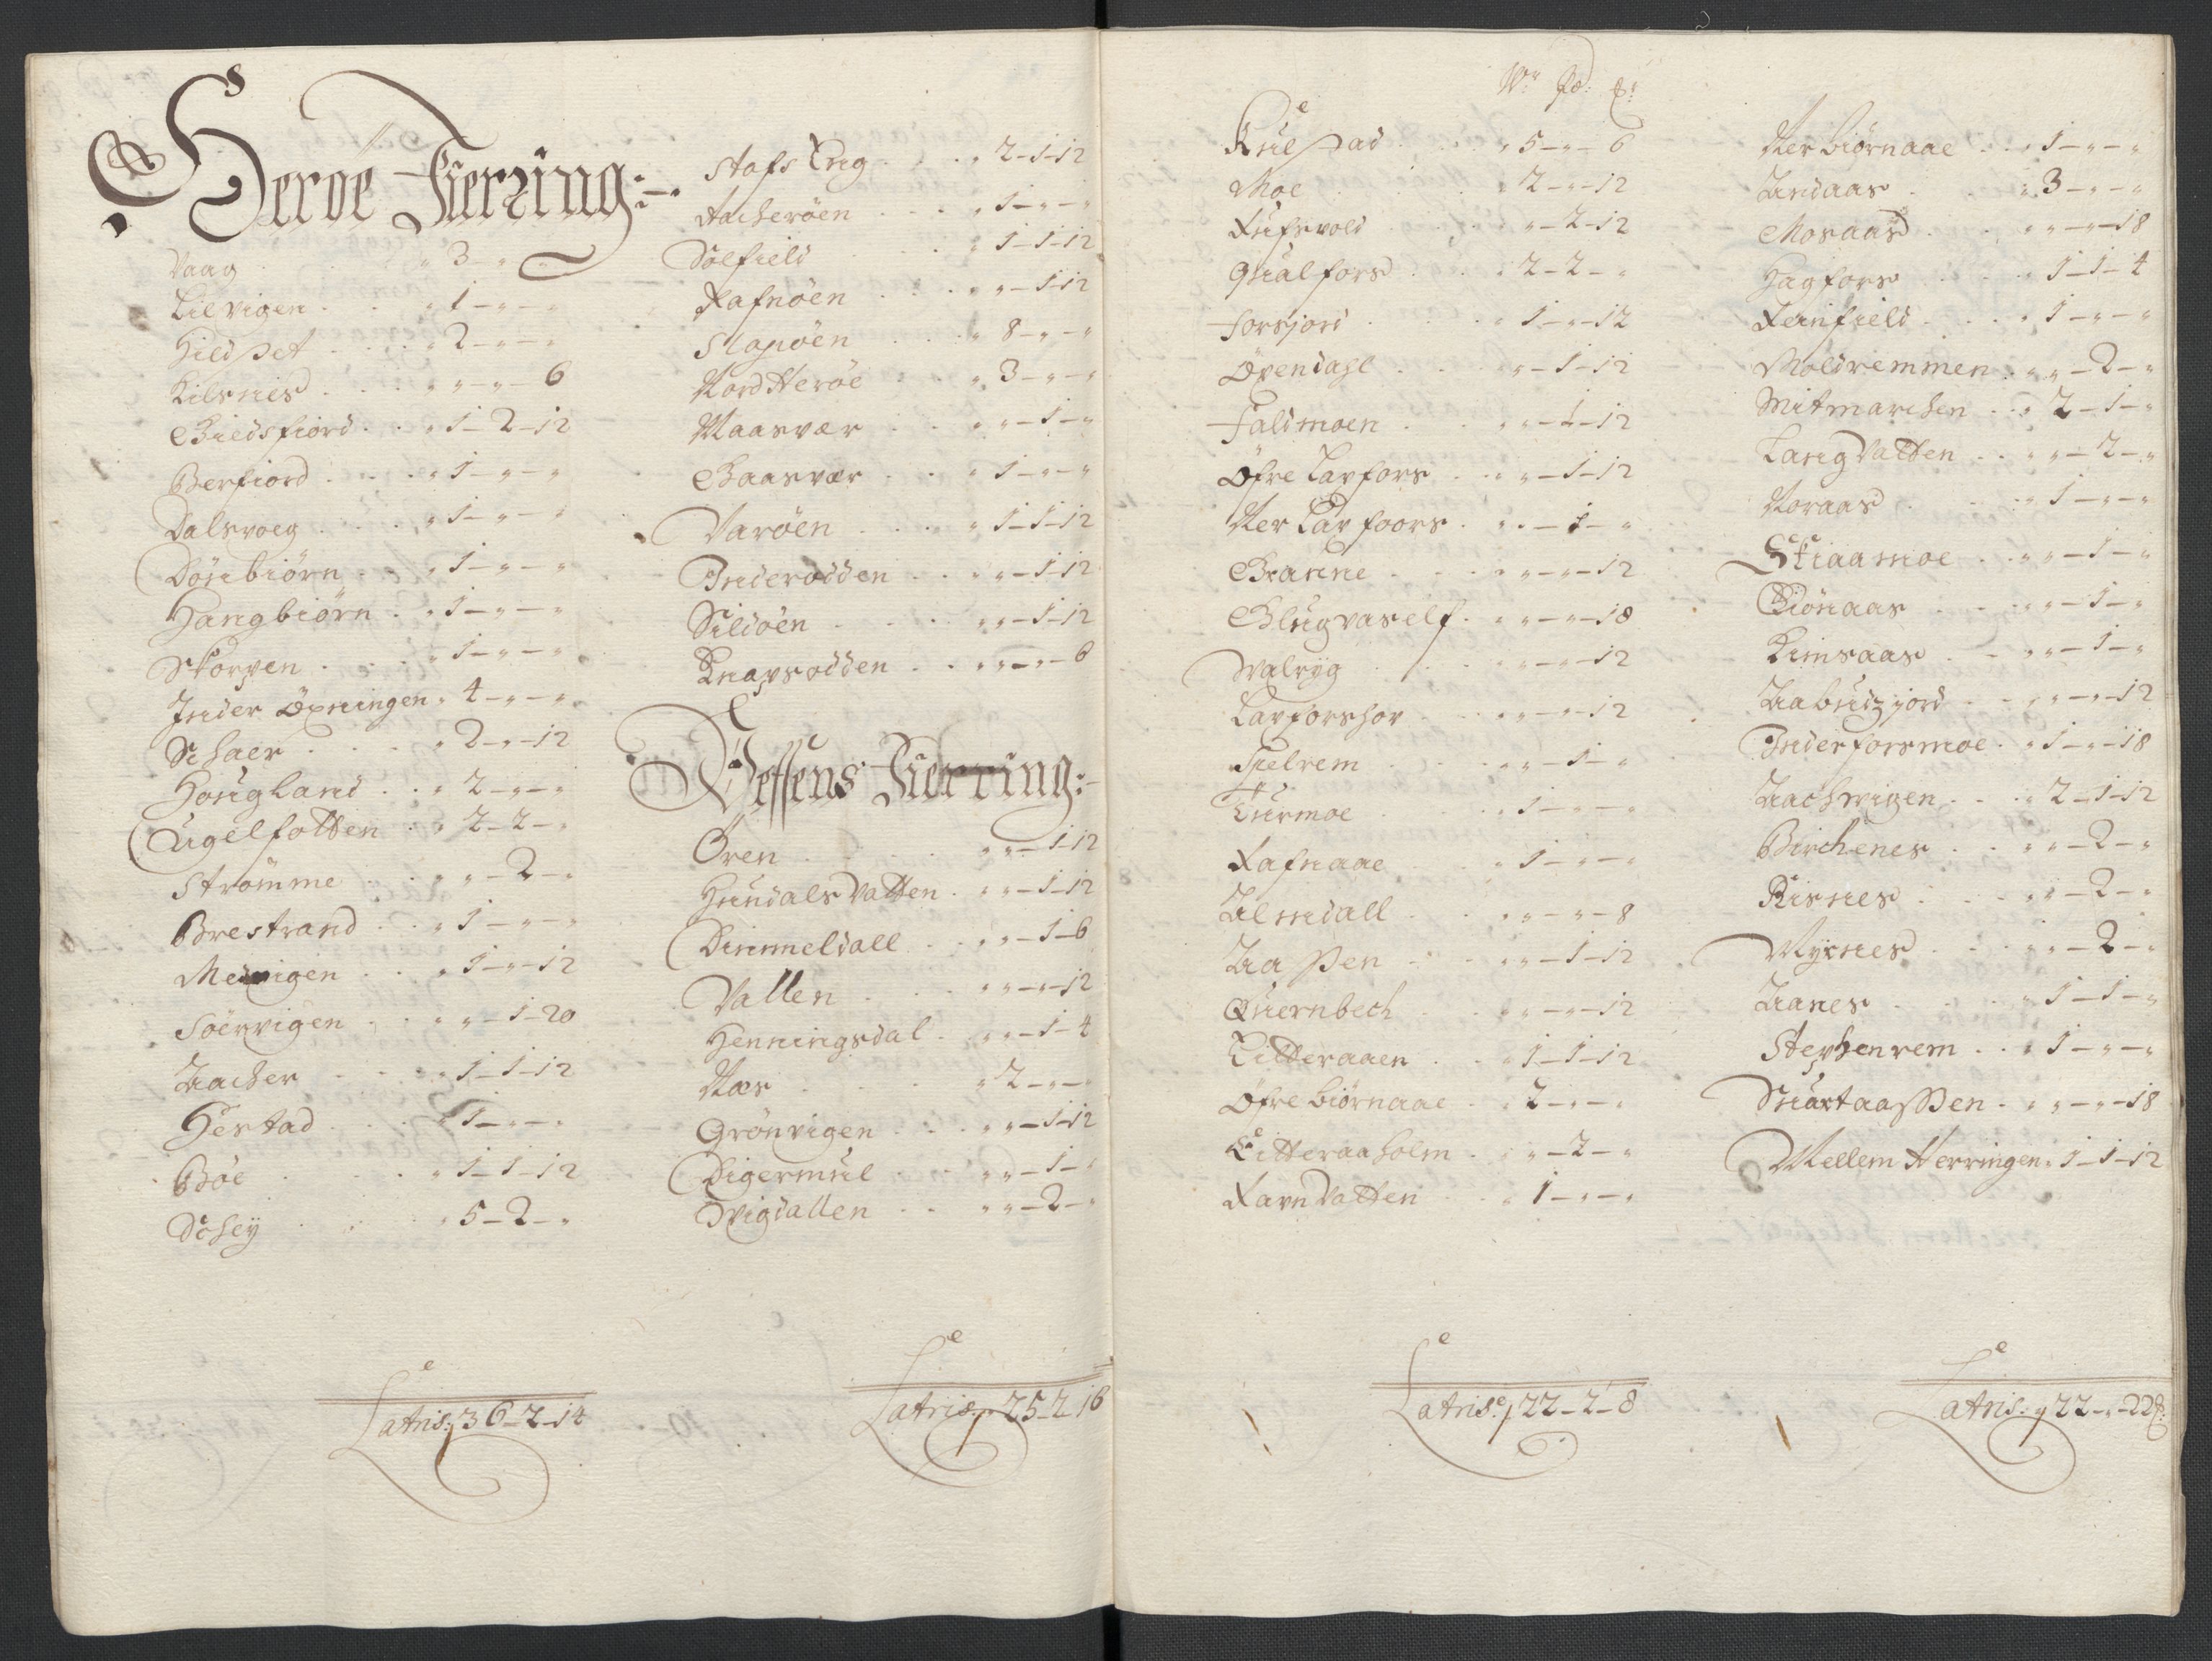 Herøe Fierring:
Vaag „ 3 - „ - „
Lilvigen „ 1 - „ - „
Hildset „ 2 - „ - „
Kilsnes „ „ - „ - 6
Bielsfiord „ 1 - 2 - 12
Berfiord „ 1 - „ - „
Dalsvoeg „ 1 - „ - „
Dønbiørn „ 1 - „ - „
Hangbiørn „ 1 - „ - „
Skorpen „ 1 - „ - „
Inder Øxningen „ 4 - „ - „
Schaer „ 2 - „ - 12
Hougland „ 2 - „ - „
Ugelfotten „ 2 - 2 - „
Strømme „ „ - 2 - „
Brestrand „ 1 - „ - „
Medvigen „ 1 - „ - 12
Søervigen „ „ - 1 - 20
Aacher „ 1 - 1 - 12
Hestad „ 1 - „ - „
Bøe „ 1 - 1 - 12
Schey „ 5 - 2 - „
Latris: 36 - 2 - 14
Stafs Eng „ 2 - 1 - 12
Aacherøen „ 1 - „ - „
Sølfield „ 1 - 1 - 12
Rafnøen „ „ - 1 - 12
Slapøen „ 8 - „ - „
Nord Herøe „ 3 - „ - „
Maasvær „ „ - 1 - „
Baasvær „ 1 - „ - „
Varøen „ 1 - 1 - 12
Inderodden „ „ - 1 - 12
Sildøen „ „ - 1 - 12
Knapsodden „ „ - „ - 6
Vefsens Fierring:
Øren „ „ - 1 - 12
Hundals Vatten „ „ - 1 - 12
Dimmeldall „ „ - 1 - 6
Vallen „ „ - „ - 12
Henningsdal „ „ - 1 - 4
Næs „ 2 - „ - „
Grønvigen „ „ - 1 - 12
Digermul „ „ - 1 - „
Dvigdallen „ „ - 2 - „
Latris: 25 - 2 - 16
W: Pd: £:
Kulstad „ 5 - „ - 6
Moe „ 2 - „ - 12
Rufsvold „ „ - 2 - 12
Qualfors „ 2 - 2 - „
Forsjord „ 1 - „ - 12
Øxendahl „ „ - 1 - 12
Faldmoen „ „ - 1 - 12
Øfre Laxfors „ „ - 1 - 12
Ner Laxfoors „ „ - 1 - „
Granne „ „ - „ - 12
Glugvaself „ „ - „ - 18
Walryg „ „ - „ - 12
Laxforshov „ „ - „ - 12
Turmoe „ 1 - „ - „
Rafnaae „ 1 - „ - „
Almdall „ „ - „ - 8
Aaspen „ „ - 1 - 12
Quernbech „ „ - „ - 12
Litteraaen „ 1 - 1 - 12
Øfre biørnaae „ 2 - „ - „
Litteraaholm „ „ - 2 - „
Ravn Vatten „ 1 - „ - „
Latris: 22 - 2 - 8
Ner biørnaae „ 1 - „ - „
Andaas „ 3 - „ - „
Mosaas „ „ - „ - 18
Hagfors „ 1 - 1 - 4
Reinfield „ 1 - „ - „
Moldremmen „ „ - 2 - „
Mitmarchen „ 2 - 1 - „
Lang Vatten „ „ - 2 - „
Noraas „ 1 - „ - „
Stiaamoe „ „ - 1 - „
Biønaas „ „ - 1 - „
Kimsaas „ „ - 1 - „
Aabudzjord „ „ - „ - 12
Inderforsmoe „ 1 - „ - 18
Aachvigen „ 2 - 1 - 12
Birchenes „ „ - 2 - „
Risnes „ „ - 2 - „
Myrnes „ „ - 2 - „
Aanes „ 1 - 1 - „
Stephenrem „ 1 - „ - „
Suartaasen „ „ - „ - 18
Mellem Herringen „ 1 - 1 - 12
Latris: 22 - „ - 22£: